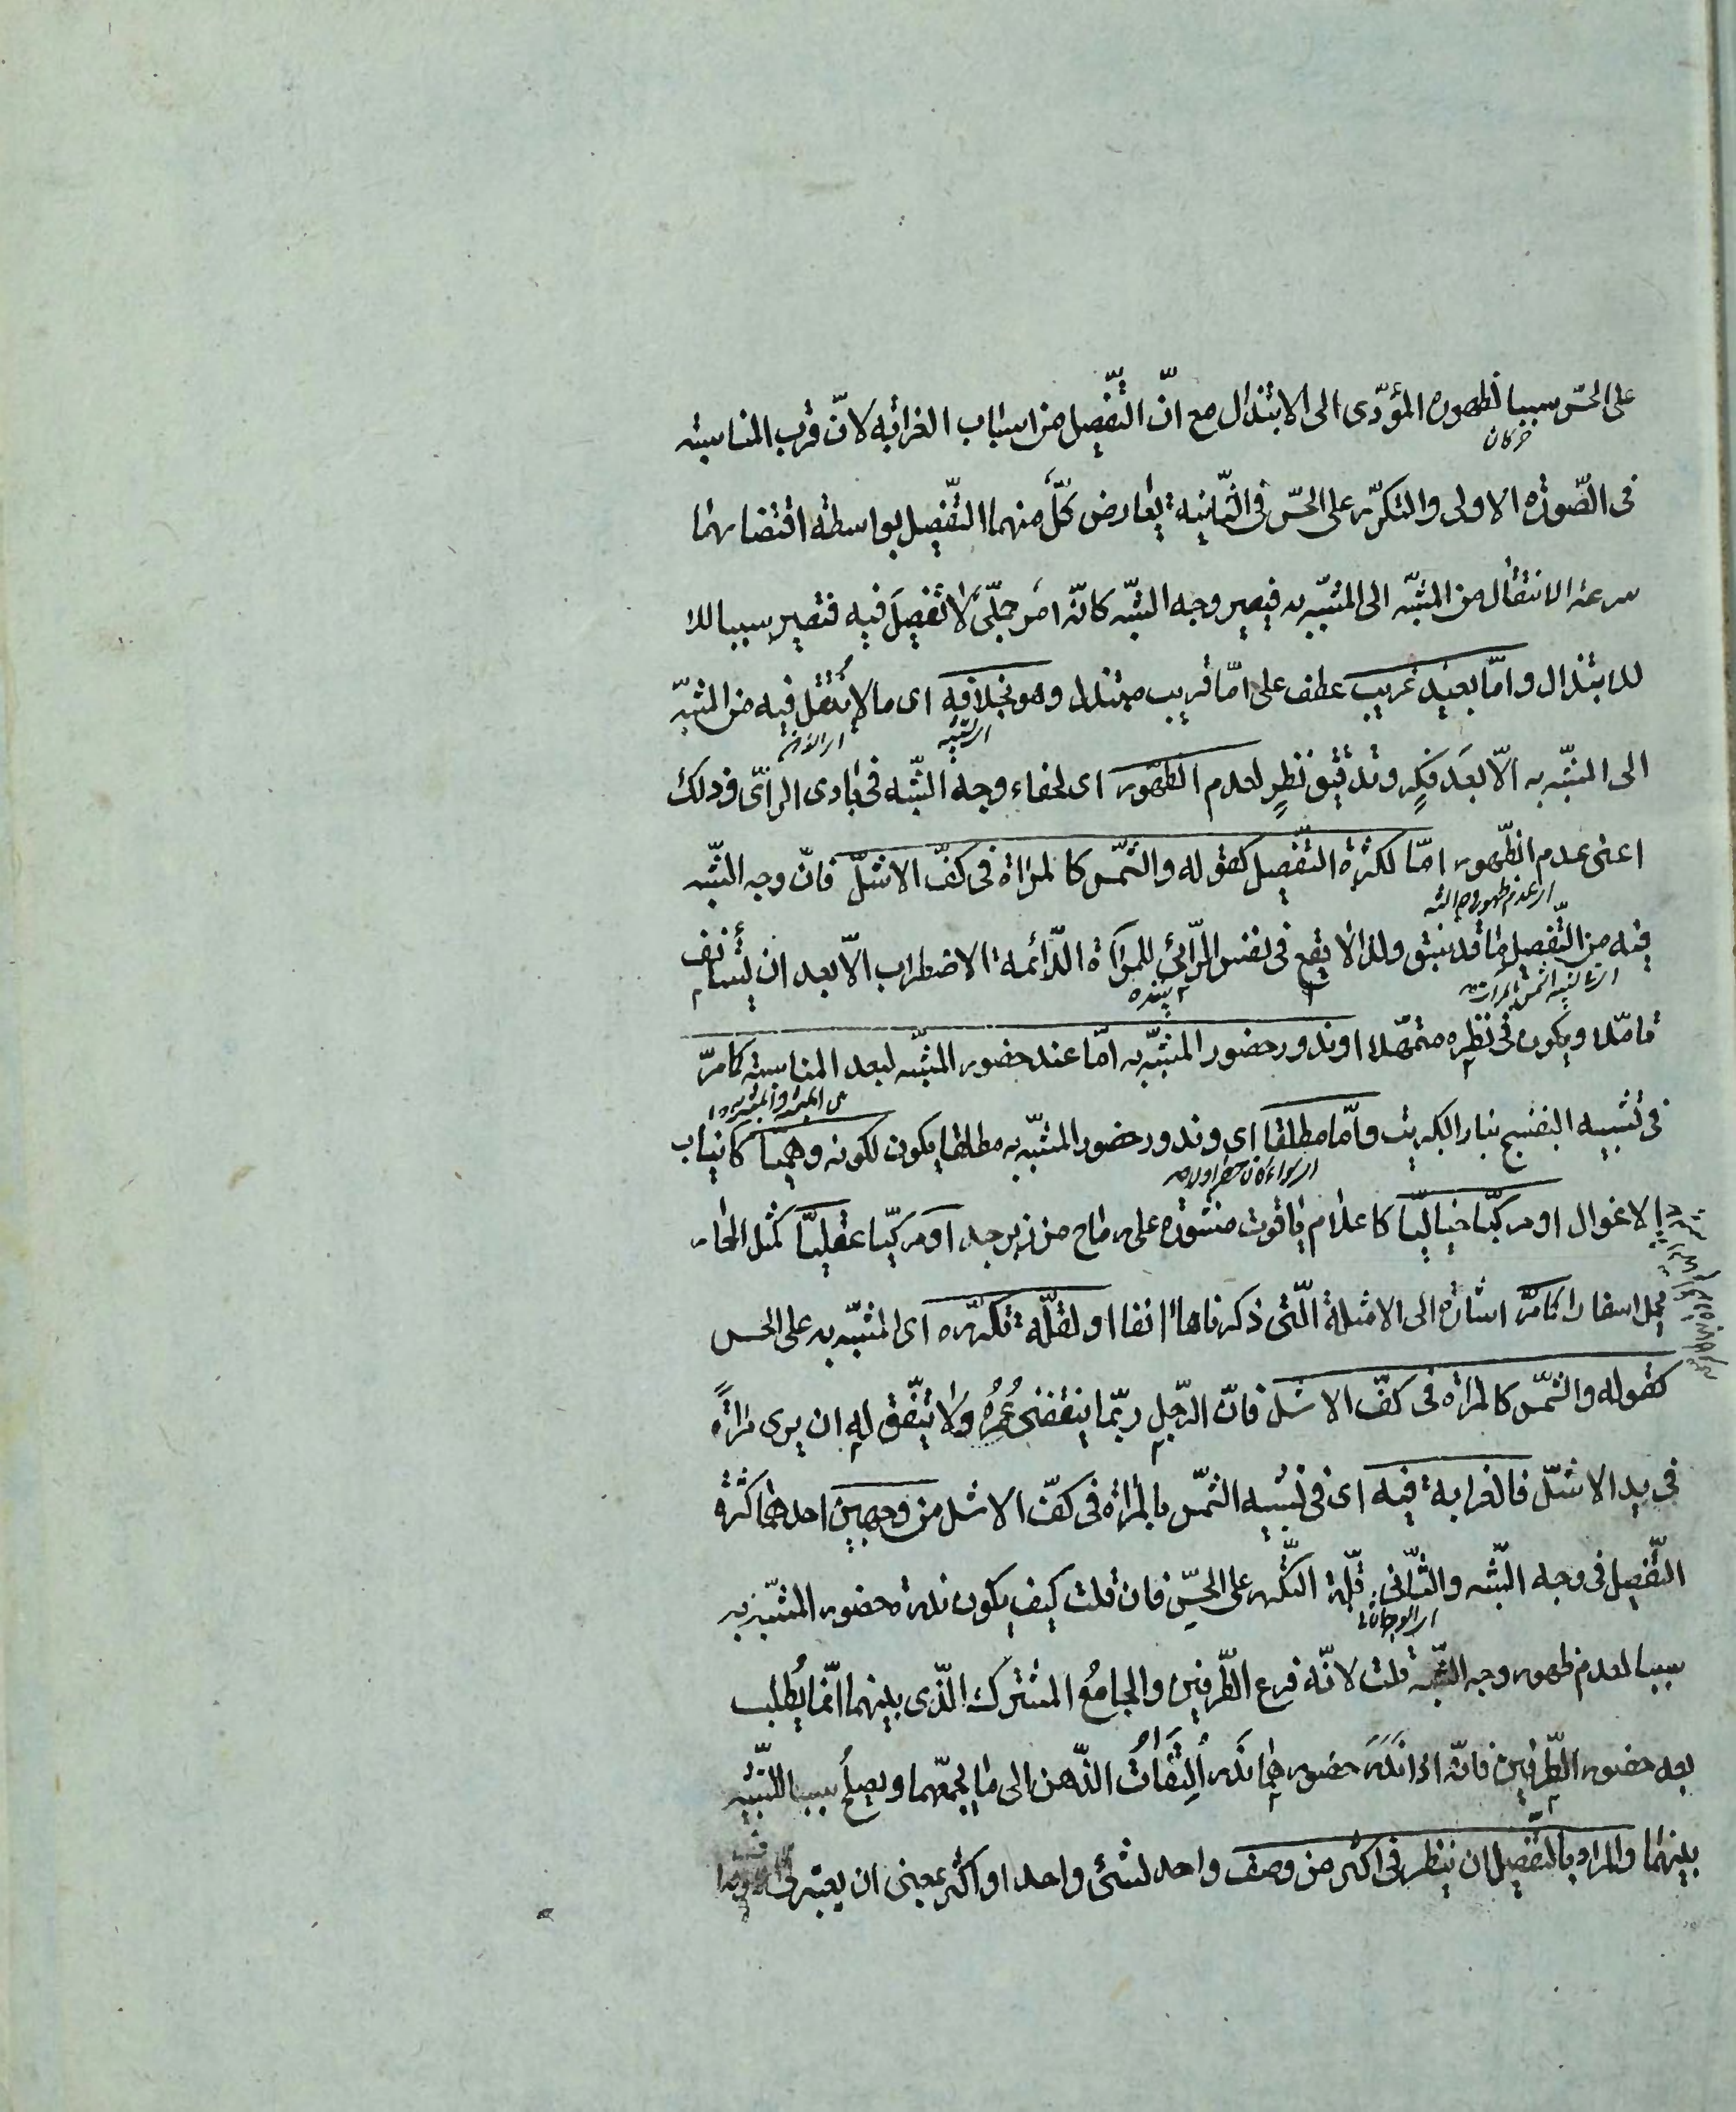 على الحسّ سببا لظهوره المؤدّى الى الابتذال مع انّ التّفصيل من اسباب الغرابة لانّ قرب المناسبة
فى الصّورة الاولى والتكرّر على الحسّ فى الثّانية يعارض كلّ منهما التّفصيل بواسطة اقتضائهما
سرعة الانتقال من المشبّه الى المشبّه به فيصير وجه الشّبه كانّه امر جملّى لا تفصيل فيه فتصير سببا للا
للابتذال وامّا بعيد غريب عطف على امّا قريب مبتذل وهو بخلافه اى ما لا ينتقل فيه من المشبّه
الى المشبّه به الّا بعد فكر وتدقيق نظر لعدم الظّهور اى لخفاء وجه الشّبه فى بادى الرّأى وذلك
اعنى عدم الظّهور امّا لكثرة التّفصيل كقوله والشّمس كالمراة فى كفّ الاشلّ فانّ وجه الشّبه
اى عدم ظهور وجه الشبه
فيه من التّفصيل ما قد سبق ولذا لا يقع فى نفس الرّائى للمرآة الدّائمة الاضطراب الّا بعد ان يستأنف
تامّلا ويكون فى نظره متمهّلا او ندور حضور المشبّه به امّا عند حضور المشبّه لبعد المناسبة كما مرّ
فى تشبيه البنفسج بنار الكبريت وامّا مطلقا اى وندور حضور المشبّه به مطلقا يكون لكونه وهميّا كانياب
الاغوال او مركّبا خياليّا كاعلام ياقوت منشورة على رماح من زبرجد او مركّبا عقليّا كمثل الحمار
يحمل اسفارا كما مرّ اشارة الى الامثلة الّتى ذكرناها انفا او لقلّة تكرّره اى المشبّه به على الحس
كقوله والشّمس كالمراة فى كفّ الاشل فانّ الرّجل ربّما ينقضى عمره ولا يتّفق له ان يرى مراة
فى يد الاشلّ فالغرابة فيه اى فى تشبيه الشّمس بالمراة فى كفّ الاشل من وجهين احدهما كثرة
التّفصيل فى وجه الشّبه والثّانى قلّة التّكرّر على الحسّ فان قلت كيف يكون ندرة حضور المشبّه به
سببا لعدم ظهور وجه الشّبه قلت لانّه فرع الطّرفين والجامع المشترك الّذى بينهما انّما يطلب
بعد حضور الطّرفين فانّه اذا ندر حضورهما ندر التفات الذّهن الى ما يجمعهما ويصلح سببا للتّشبيه
بينهما والمراد بالتّفصيل ان ينظر فى اكثر من وصف واحد لشئى واحد او اكثر بمعنى ان يعتبر فى